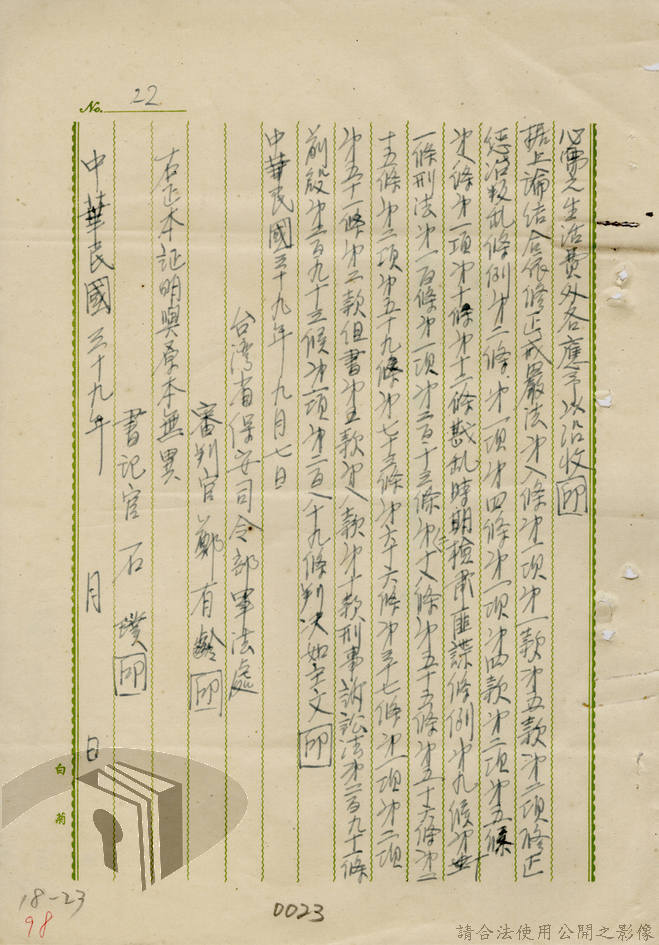 No. 22
必需之生活費外各應予以沒收 印
據上論結合依修正戒嚴法第八條第一項第一款第五款第二項修正
懲治叛亂條例第二條第一項第四條第一項第四款第二項第五條
第十條第十二條戡亂時期檢肅匪諜條例第九條
一條刑法第一百條第一項第二百十三條第十八條第五十五條第五十六條第二
十五條第二項第五十九條第七十三條第六十六條第三十七條第一項第二項
第五十一條第二款但書第五款第八款第十款刑事訴訟法第二百九十一條
前段第二百九十三條第一項第二百八十九條判決如主文 印
中華民國三十九年九月七日
台灣省保安司令部軍法處
審判官 鄭有齡 印
右正本証明與原本無異
書記官 石璞 印
中華民國三十九年 月 日
白菊
18-23
98
0023
請合法使用公開之影像